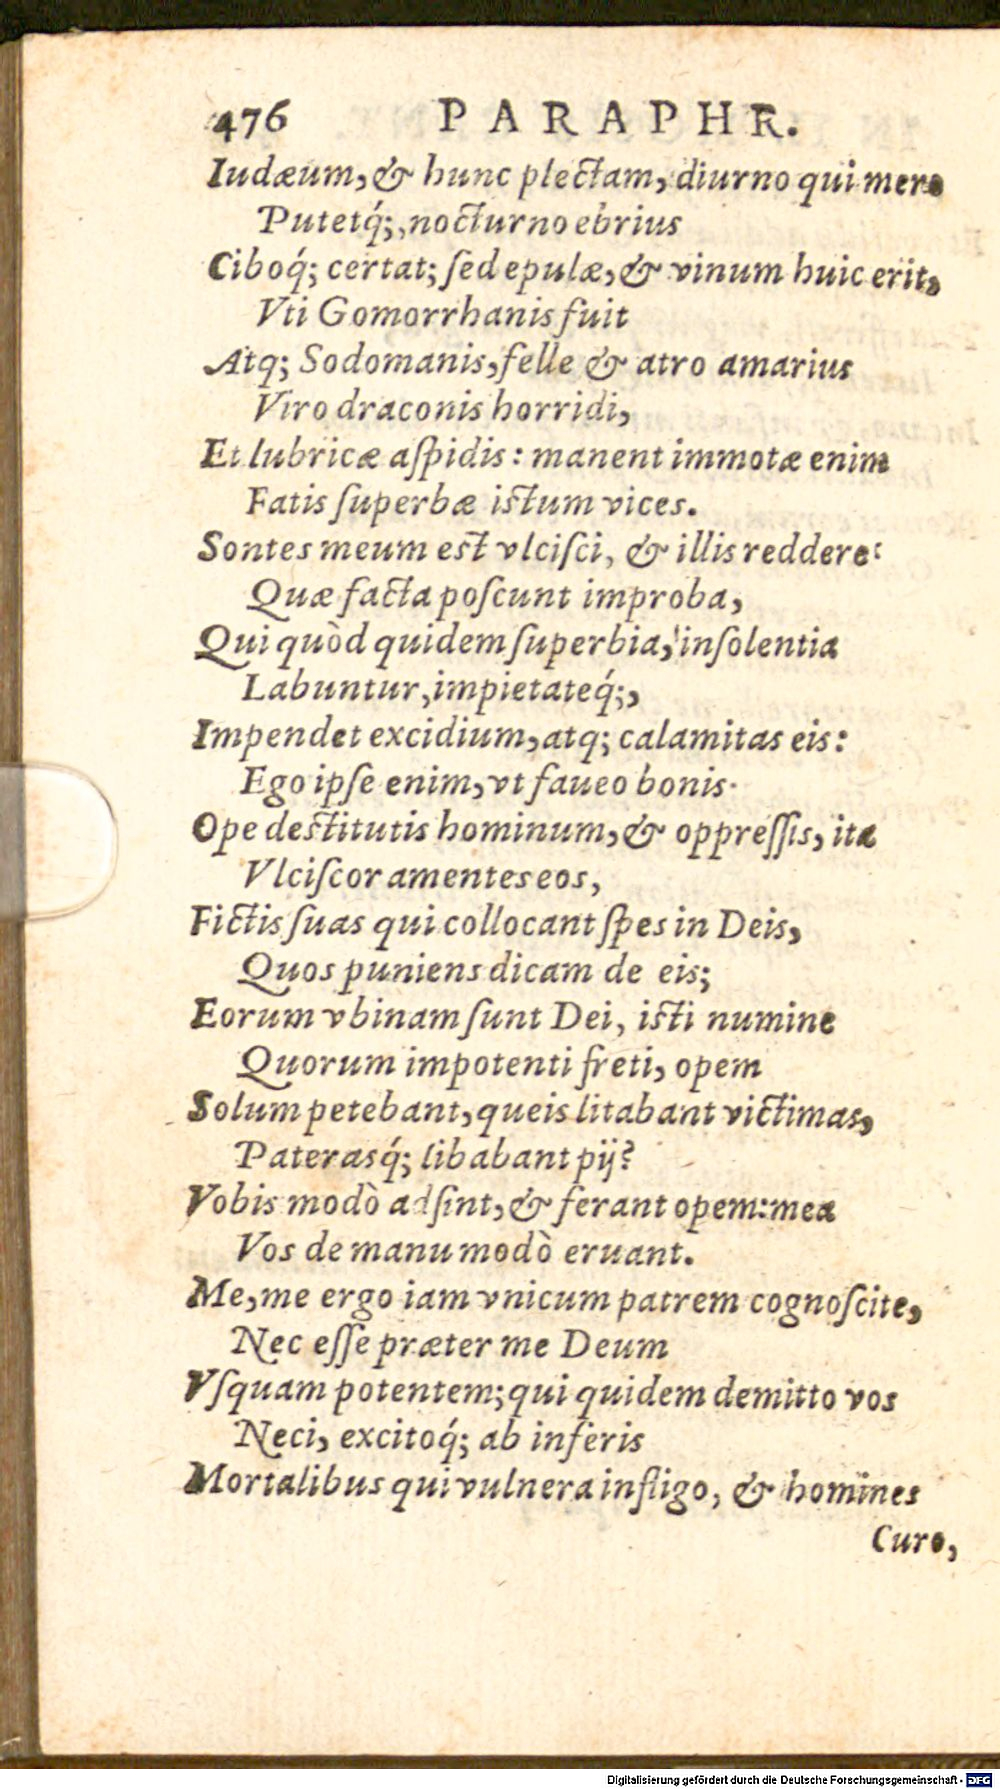 476 PARAPHR.
Iudæum, & hunc plectam, diurno qui mero
Putetq́;, nocturno ebrius
Ciboq́; certat; ſed epulæ, & vinum huic erit,
Vti Gomorrhanis fuit
Atq; Sodomanis, felle & atro amarius
Viro draconis horridi,
Et lubricæ aſpidis: manent immotæ enim
Fatis ſuperbæ istum vices.
Sontes meum est vlciſci, & illis reddere:
Quæ facta poſcunt improba,
Qui quòd quidem ſuperbia, inſolentia
Labuntur, impietateq́;,
Impendet excidium, atq; calamitas eis:
Ego ipſe enim, vt faueo bonis.
Ope destitutis hominum, & oppreſſis, ita
Vlciſcor amentes eos,
Fictis ſuas qui collocant ſpes in Deis,
Quos puniens dicam de eis;
Eorum vbinam ſunt Dei, isti numine
Quorum impotenti freti, opem
Solum petebant, queis litabant victimas,
Paterasq́; libabant pij?
Vobis modò adſint, & ferant opem: mea
Vos de manu modò eruant.
Me, me ergo iam vnicum patrem cognoſcite,
Nec eſſe præter me Deum
Vſquam potentem; qui quidem demitto vos
Neci, excitoq́; ab inferis
Mortalibus qui vulnera infligo, & homines
Curo,
Digitalisierung gefördert durch die Deutsche Forschungsgemeinschaft - DFG